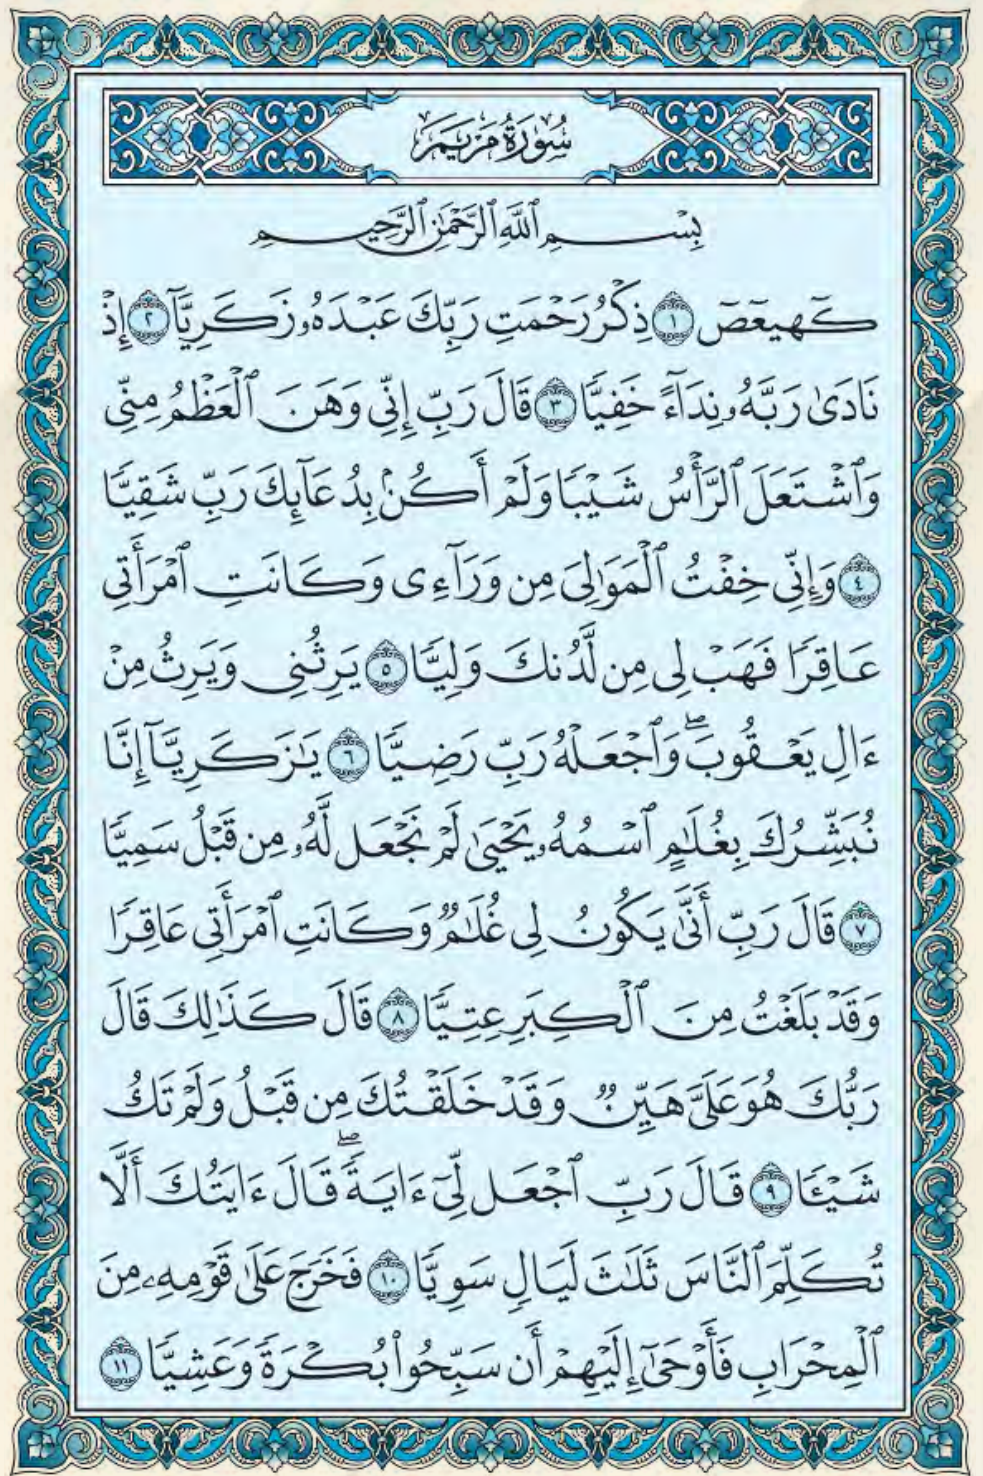 سُورَةُ مَرْيَمَ
بِسْمِ ٱللَّهِ ٱلرَّحْمَٰنِ ٱلرَّحِيمِ
كٓهيعٓصٓ ١ ذِكْرُ رَحْمَتِ رَبِّكَ عَبْدَهُۥ زَكَرِيَّآ ٢ إِذْ
نَادَىٰ رَبَّهُۥ نِدَآءً خَفِيًّا ٣ قَالَ رَبِّ إِنِّي وَهَنَ ٱلْعَظْمُ مِنِّي
وَٱشْتَعَلَ ٱلرَّأْسُ شَيْبًا وَلَمْ أَكُنۢ بِدُعَآئِكَ رَبِّ شَقِيًّا
٤ وَإِنِّي خِفْتُ ٱلْمَوَٰلِيَ مِن وَرَآءِي وَكَانَتِ ٱمْرَأَتِي
عَاقِرًا فَهَبْ لِي مِن لَّدُنكَ وَلِيًّا ٥ يَرِثُنِي وَيَرِثُ مِنْ
ءَالِ يَعْقُوبَۖ وَٱجْعَلْهُ رَبِّ رَضِيًّا ٦ يَٰزَكَرِيَّآ إِنَّا
نُبَشِّرُكَ بِغُلَٰمٍ ٱسْمُهُۥ يَحْيَىٰ لَمْ نَجْعَل لَّهُۥ مِن قَبْلُ سَمِيًّا
٧ قَالَ رَبِّ أَنَّىٰ يَكُونُ لِي غُلَٰمٌ وَكَانَتِ ٱمْرَأَتِي عَاقِرًا
وَقَدْ بَلَغْتُ مِنَ ٱلْكِبَرِ عِتِيًّا ٨ قَالَ كَذَٰلِكَ قَالَ
رَبُّكَ هُوَ عَلَيَّ هَيِّنٌ وَقَدْ خَلَقْتُكَ مِن قَبْلُ وَلَمْ تَكُ
شَيْـًٔا ٩ قَالَ رَبِّ ٱجْعَل لِّيٓ ءَايَةًۖ قَالَ ءَايَتُكَ أَلَّا
تُكَلِّمَ ٱلنَّاسَ ثَلَٰثَ لَيَالٍ سَوِيًّا ١٠ فَخَرَجَ عَلَىٰ قَوْمِهِۦ مِنَ
ٱلْمِحْرَابِ فَأَوْحَىٰٓ إِلَيْهِمْ أَن سَبِّحُوا۟ بُكْرَةً وَعَشِيًّا ١١